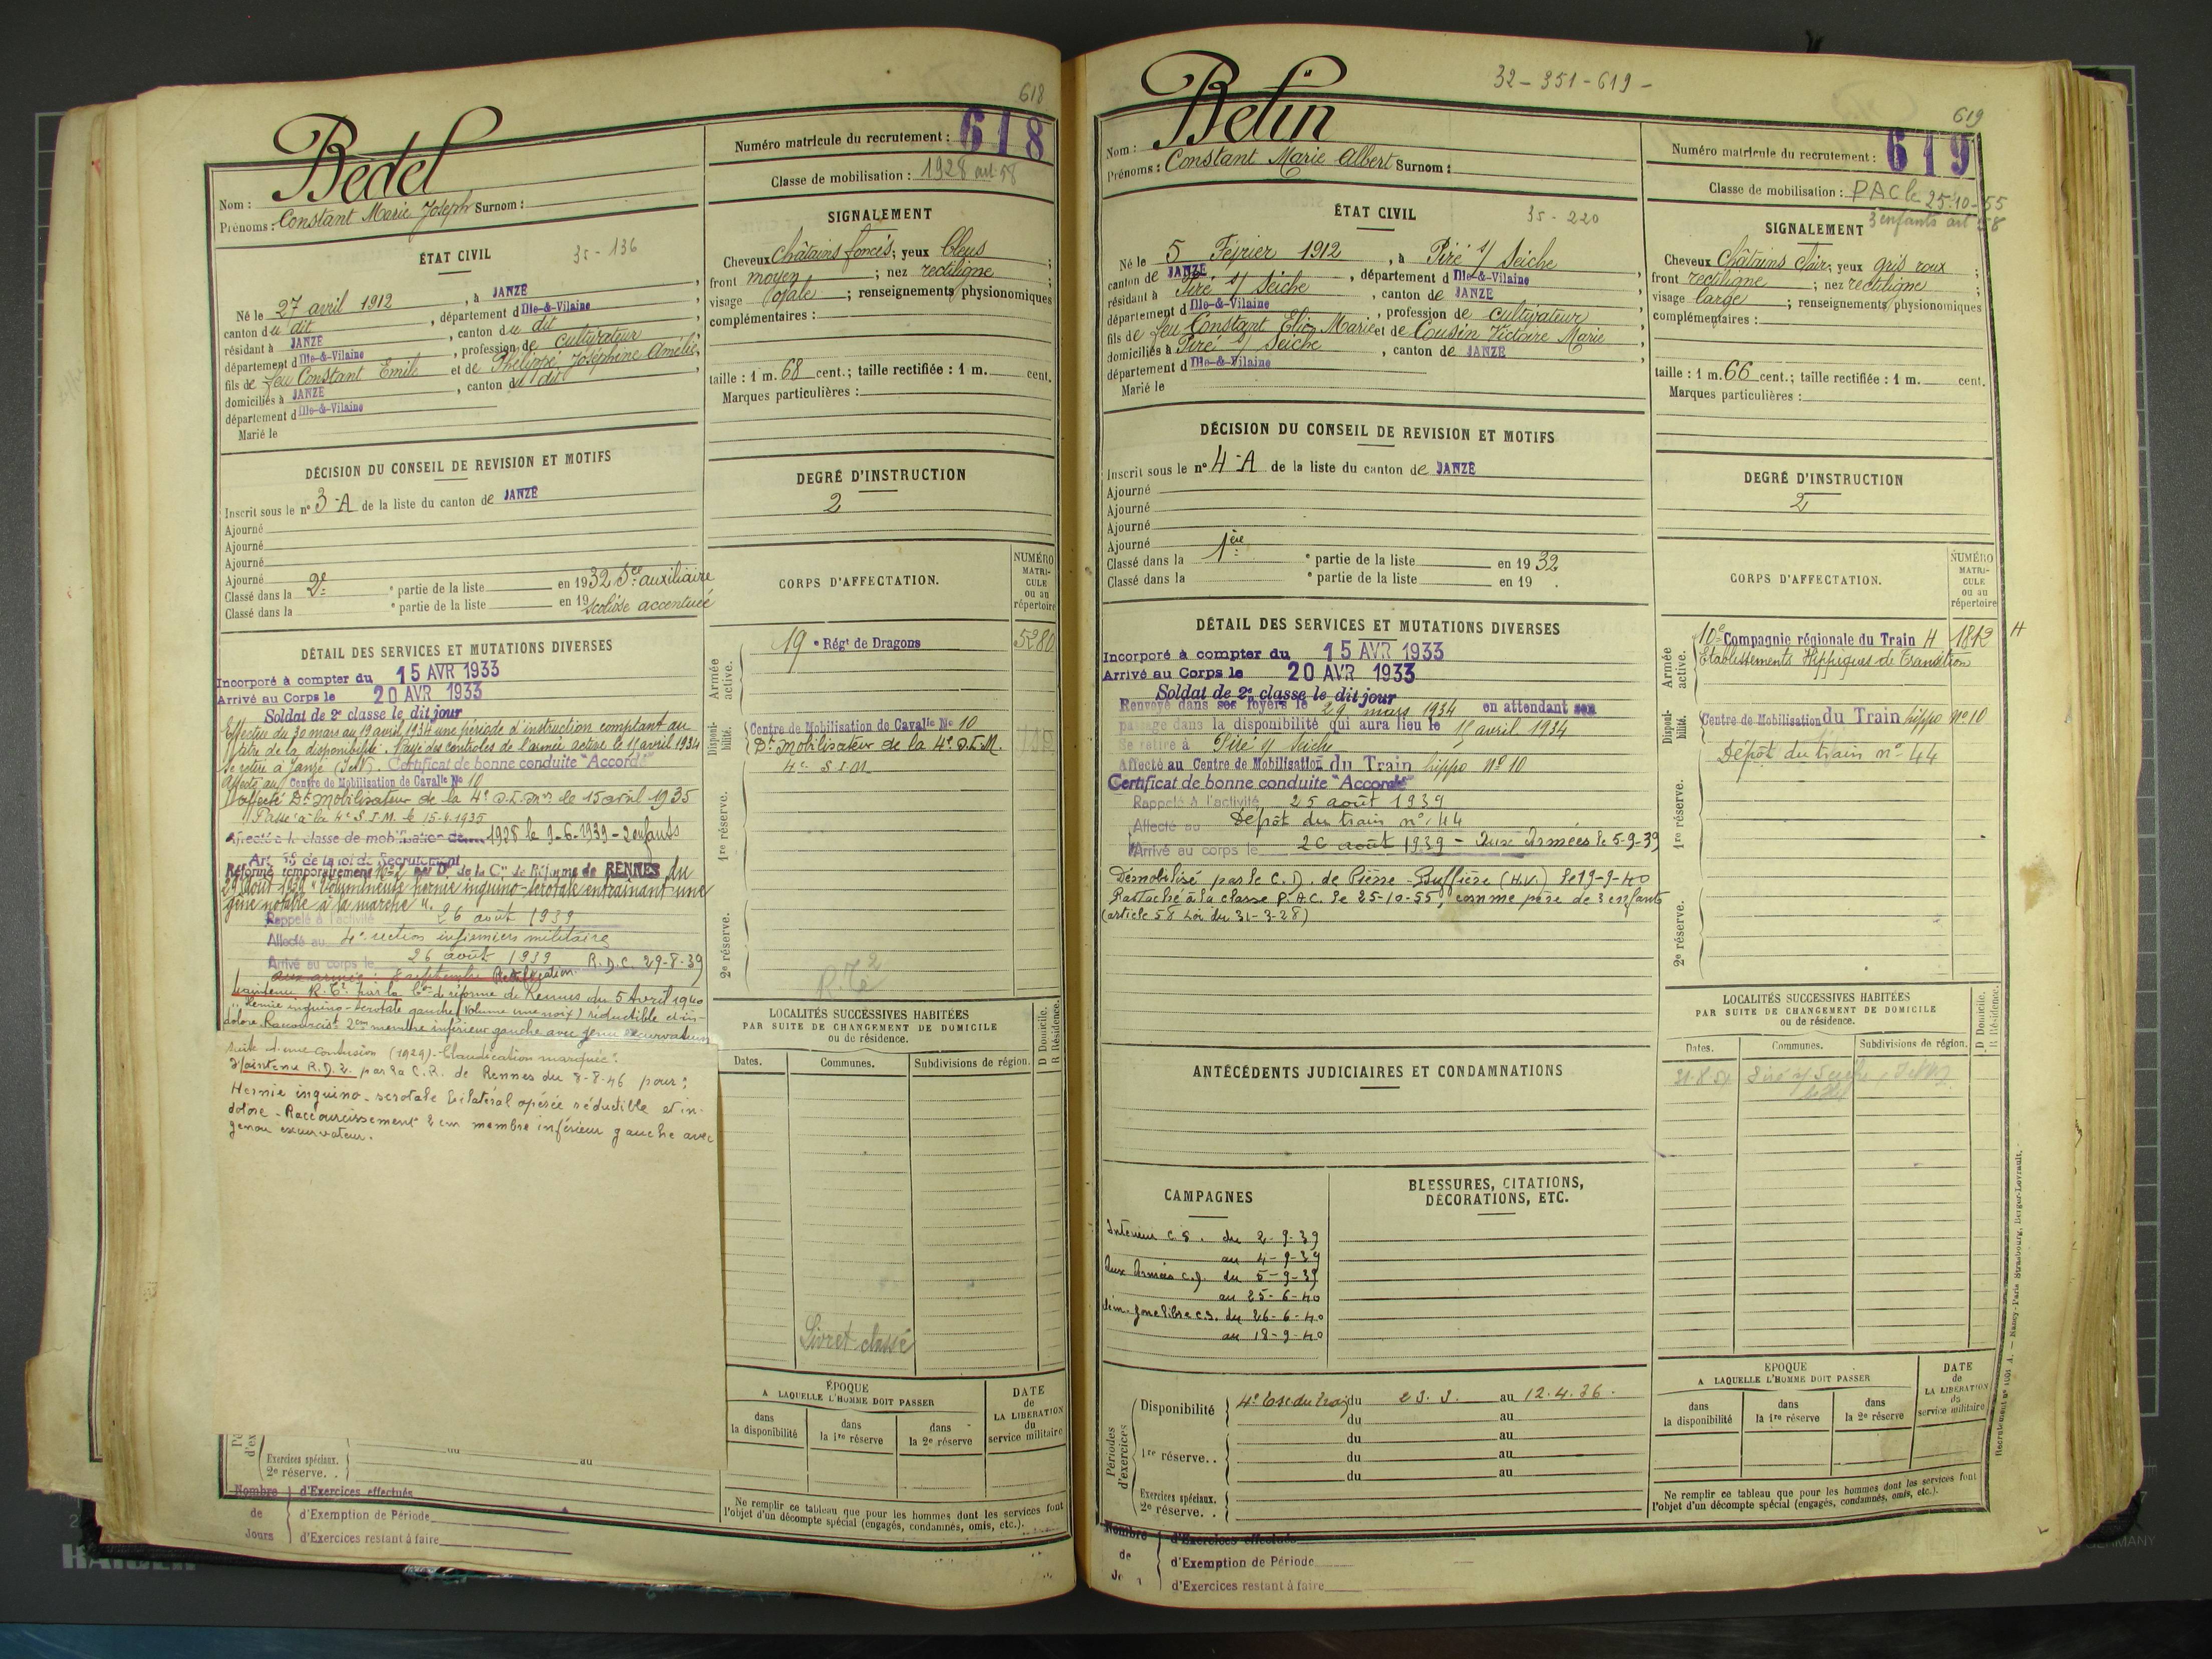 618
Bedel
Numéro matricule du recrutement : 618
Classe de mobilisation : 1928 art 58
Nom :
Prénoms : Constant Marie Joseph Surnom :
ÉTAT CIVIL
35-136
Né le 27 avril 1912, à JANZÉ
canton du dit, département d Ille-&-Vilaine,
résidant à JANZÉ, canton du dit,
département d Ille-&-Vilaine, profession de cultivateur
fils de feu Constant Emile et de Phelippé Joséphine Amélie,
domiciliés à JANZÉ, canton du dit
département d Ille-&-Vilaine
Marié le
SIGNALEMENT
Cheveux châtains foncés; yeux bleus;
front moyen; nez rectiligne;
visage ovale; renseignements physionomiques
complémentaires :
taille : 1 m. 68 cent.; taille rectifiée : 1 m. cent.
Marques particulières :
DÉCISION DU CONSEIL DE REVISION ET MOTIFS
Inscrit sous le n° 3-A de la liste du canton de JANZÉ
Ajourné
Ajourné
Ajourné
Ajourné
Classé dans la 2e ° partie de la liste en 1932 Sce auxiliaire
Classé dans la ° partie de la liste en 19 Scoliose accentuée
DEGRÉ D'INSTRUCTION
2
DÉTAIL DES SERVICES ET MUTATIONS DIVERSES
Incorporé à compter du 15 AVR 1933
Arrivé au Corps le 20 AVR 1933
Soldat de 2e classe le dit jour
Effectue du 30 mars au 19 avril 1934 une période d'instruction comptant au
titre de la disponibilité. Rayé des contrôles de l'armée active le 15 avril 1934
Se retire à Janzé (I&V). Certificat de bonne conduite "Accordé"
Affecté au Centre de Mobilisation de Cavalie No 10
Affecté Dt mobilisateur de la 4e D.I.M. le 15 avril 1935
Passé à la 4e S.I.M. le 15-9-1935
Affecté à la classe de mobilisation de 1928 le 9-6-1939 - 2 enfants
Art 58 de la loi de Recrutement
Réformé temporairement N°2 par Don de la Con de Réforme de RENNES du
29 août 1939 "Volumineuse hernie inguino-scrotale entraînant une
gêne notable à la marche".
Rappelé à l'activité 26 août 1939
Affecté au 4e section infirmiers militaire
Arrivé au corps le 26 août 1939 R.D.C. 29-8-39
Maintenu R.T.2 par la Con de réforme de Rennes du 5 Avril 1940
"Hernie inguino-scrotale gauche (volume une noix) réductible et in-
dolore. Raccourcist 2cm membre inférieur gauche avec genu excurvatum
suite d'une contusion (1929) - Claudication marquée".
Maintenu R.D.2. par la C.R. de Rennes du 8-8-46 pour :
Hernie inguino-scrotale bilatéral opérée réductible et in-
dolore - Raccourcissement 2 cm membre inférieur gauche avec
genou excurvateur.
CORPS D'AFFECTATION.
NUMÉRO MATRICULE ou au répertoire
Armée active.
19 e Régt de Dragons 5280
Disponibilité.
Centre de Mobilisation de Cavalie No 10
Dt mobilisateur de la 4e D.I.M.
4e S.I.M.
1re réserve.
2e réserve.
R.T2
LOCALITÉS SUCCESSIVES HABITÉES
PAR SUITE DE CHANGEMENT DE DOMICILE
ou de résidence.
D Domicile. R Résidence.
Dates. Communes. Subdivisions de région.
Livret classé
ÉPOQUE
A LAQUELLE L'HOMME DOIT PASSER
dans la disponibilité
dans la 1re réserve
dans la 2e réserve
DATE de LA LIBÉRATION du service militaire
Exercices spéciaux.
2e réserve. . au
Nombre de Jours
d'Exercices effectués
d'Exemption de Période
d'Exercices restant à faire
Ne remplir ce tableau que pour les hommes dont les services font
l'objet d'un décompte spécial (engagés, condamnés, omis, etc.).
32-351-619-
619
Belin
Numéro matricule du recrutement : 619
Classe de mobilisation : PAC le 25-10-55
3 enfants art 58
Nom :
Prénoms : Constant Marie Albert Surnom :
ÉTAT CIVIL
35-220
Né le 5 Février 1912, à Piré s/ Seiche
canton de JANZÉ, département d Ille-&-Vilaine,
résidant à Piré s/ Seiche, canton de JANZÉ
département d Ille-&-Vilaine, profession de cultivateur
fils de feu Constant Elie Marie et de Cousin Victoire Marie
domiciliés à Piré s/ Seiche, canton de JANZÉ
département d Ille-&-Vilaine
Marié le
SIGNALEMENT
Cheveux Châtains clair; yeux gris roux;
front rectiligne; nez rectiligne;
visage large; renseignements physionomiques
complémentaires :
taille : 1 m. 66 cent.; taille rectifiée : 1 m. cent.
Marques particulières :
DÉCISION DU CONSEIL DE REVISION ET MOTIFS
Inscrit sous le n° 4-A de la liste du canton de JANZÉ
Ajourné
Ajourné
Ajourné
Ajourné
Classé dans la 1ère ° partie de la liste en 1932
Classé dans la ° partie de la liste en 19 .
DEGRÉ D'INSTRUCTION
2
DÉTAIL DES SERVICES ET MUTATIONS DIVERSES
Incorporé à compter du 15 AVR 1933
Arrivé au Corps le 20 AVR 1933
Soldat de 2e classe le dit jour
Renvoyé dans ses foyers le 29 mars 1934 en attendant son
passage dans la disponibilité qui aura lieu le 15 avril 1934
Se retire à Piré s/ Seiche
Affecté au Centre de Mobilisation du Train hippo No 10
Certificat de bonne conduite "Accordé"
Rappelé à l'activité 25 août 1939
Affecté au Dépôt du train n° 44
Arrivé au corps le 26 août 1939 - Aux Armées le 5-9-39
Démobilisé par le C.D. de Pierre-Buffière (H.V.) le 19-9-40
Rattaché à la classe P.A.C. le 25-10-55, comme père de 3 enfants
(article 58 Loi du 31-3-28)
CORPS D'AFFECTATION.
NUMÉRO MATRICULE ou au répertoire
Armée active.
10e Compagnie régionale du Train H 1812 H
Etablissements Hippiques de Transition
Disponibilité.
Centre de Mobilisation du Train hippo No 10
Dépôt du train n° 44
1re réserve.
2e réserve.
ANTÉCÉDENTS JUDICIAIRES ET CONDAMNATIONS
LOCALITÉS SUCCESSIVES HABITÉES
PAR SUITE DE CHANGEMENT DE DOMICILE
ou de résidence.
D Domicile. R Résidence.
Dates. Communes. Subdivisions de région.
Piré s/ Seiche
CAMPAGNES
Intérieur C.S. du 2-9-39
au 4-9-39
Aux Armées C.D. du 5-9-39
au 25-6-40
Dém. zone libre C.S. du 26-6-40
au 18-9-40
BLESSURES, CITATIONS,
DÉCORATIONS, ETC.
Périodes d'exercices
Disponibilité 4e Esc du train du 23.3. au 12.4.36.
du au
du au
1re réserve. . du au
du au
Exercices spéciaux.
2e réserve. .
Nombre de Jours
d'Exercices effectués
d'Exemption de Période
d'Exercices restant à faire
ÉPOQUE
A LAQUELLE L'HOMME DOIT PASSER
dans la disponibilité
dans la 1re réserve
dans la 2e réserve
DATE de LA LIBÉRATION du service militaire
Ne remplir ce tableau que pour les hommes dont les services font
l'objet d'un décompte spécial (engagés, condamnés, omis, etc.).
Nancy-Paris Strasbourg, Berger-Levrault.
GERMANY